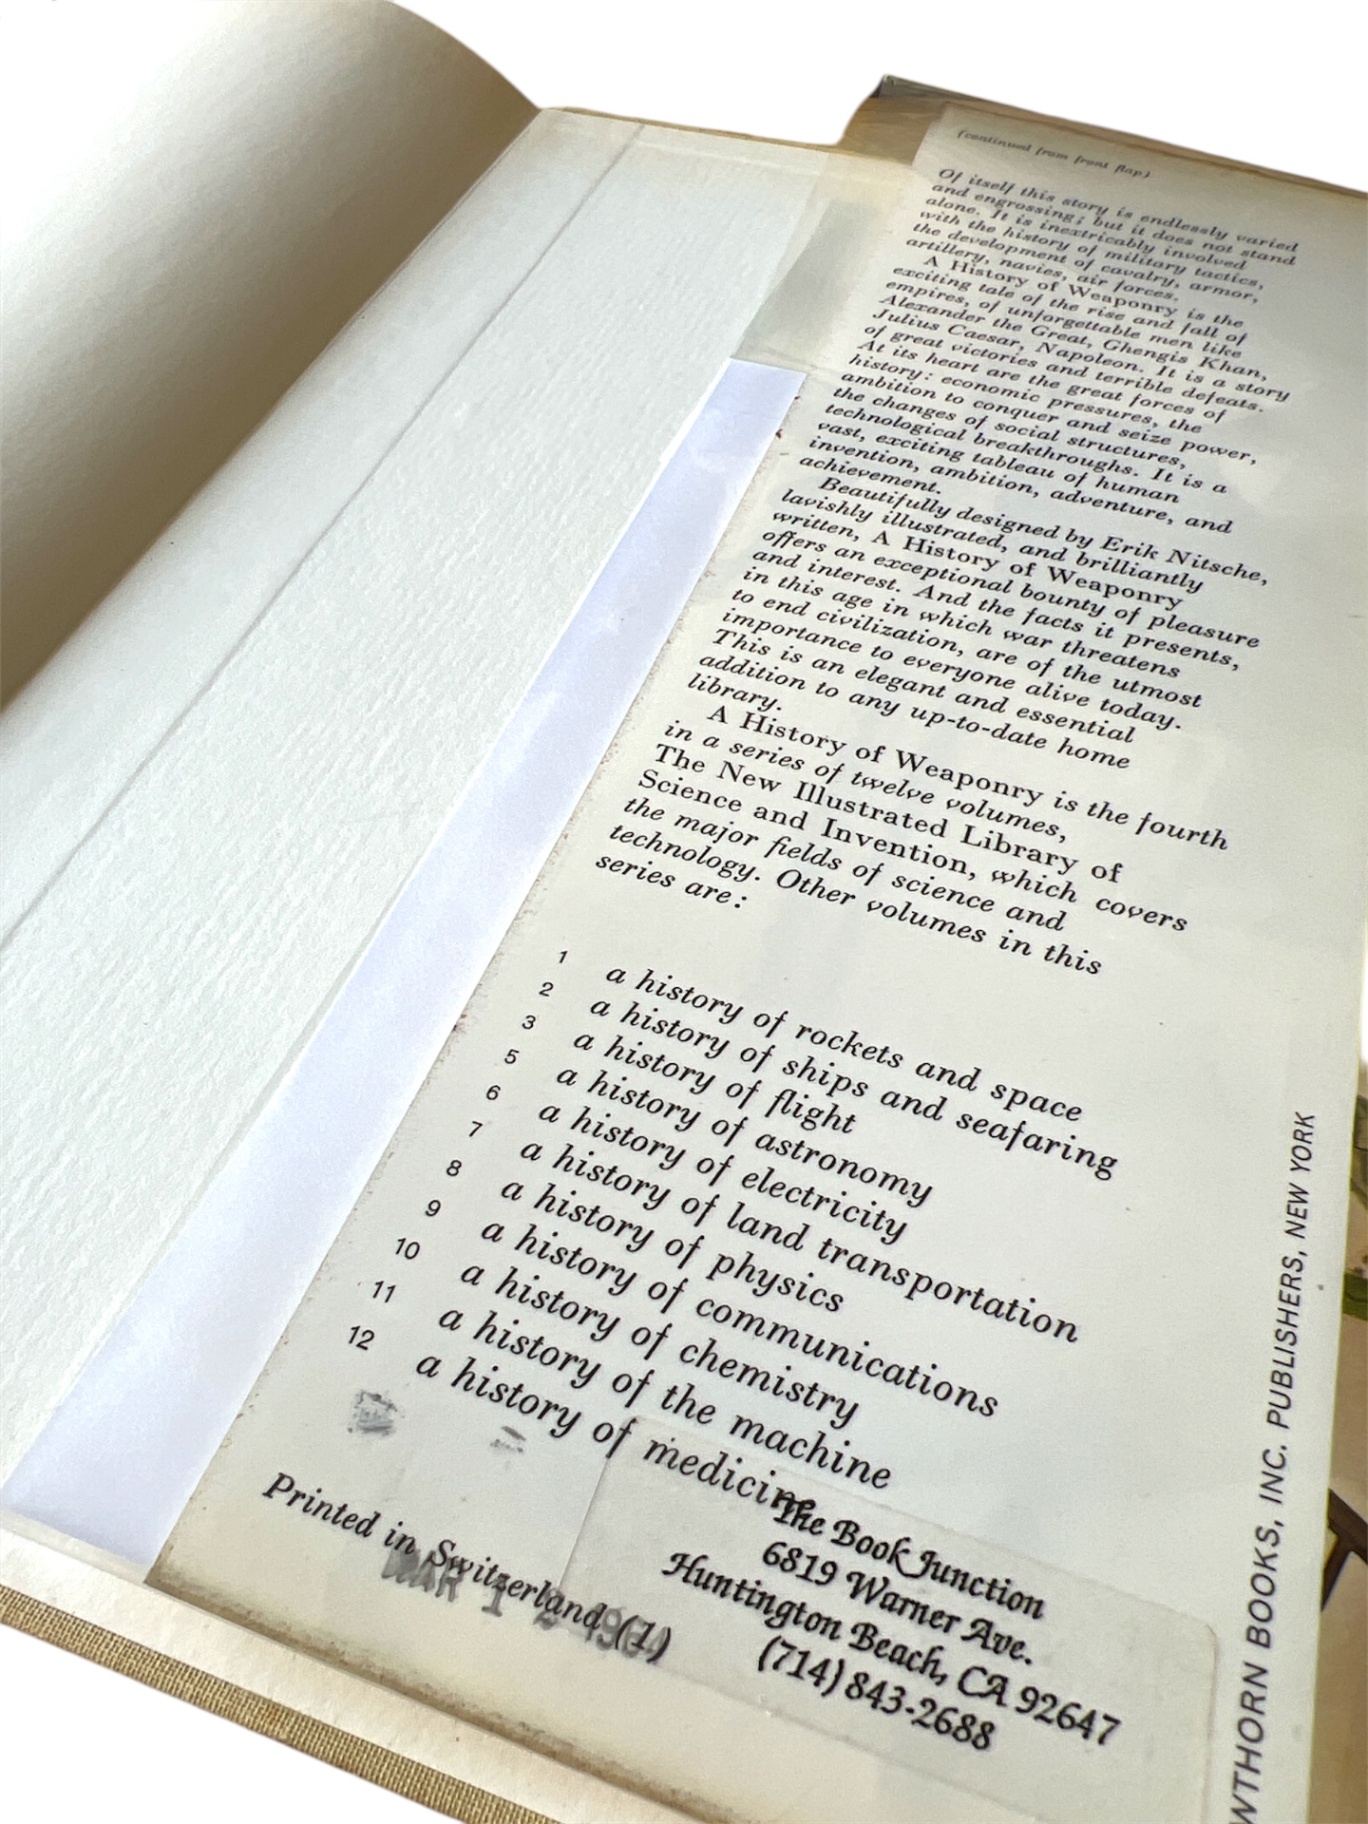 (continued from front flap)
Of itself this story is endlessly varied
and engrossing; but it does not stand
alone. It is inextricably involved
with the history of military tactics,
the development of cavalry, armor,
artillery, navies, air forces.
A History of Weaponry is the
exciting tale of the rise and fall of
empires, of unforgettable men like
Alexander the Great, Ghengis Khan,
Julius Caesar, Napoleon. It is a story
of great victories and terrible defeats.
At its heart are the great forces of
history: economic pressures, the
ambition to conquer and seize power,
the changes of social structures,
technological breakthroughs. It is a
vast, exciting tableau of human
invention, ambition, adventure, and
achievement.
Beautifully designed by Erik Nitsche,
lavishly illustrated, and brilliantly
written, A History of Weaponry
offers an exceptional bounty of pleasure
and interest. And the facts it presents,
in this age in which war threatens
to end civilization, are of the utmost
importance to everyone alive today.
This is an elegant and essential
addition to any up-to-date home
library.
A History of Weaponry is the fourth
in a series of twelve volumes,
The New Illustrated Library of
Science and Invention, which covers
the major fields of science and
technology. Other volumes in this
series are:
1 a history of rockets and space
2 a history of ships and seafaring
3 a history of flight
5 a history of astronomy
6 a history of electricity
7 a history of land transportation
8 a history of physics
9 a history of communications
10 a history of chemistry
11 a history of the machine
12 a history of medicine
Printed in Switzerland (1)
MAR 1
The Book Junction
6819 Warner Ave.
Huntington Beach, CA 92647
(714) 843-2688
WTHORN BOOKS, INC. PUBLISHERS, NEW YORK